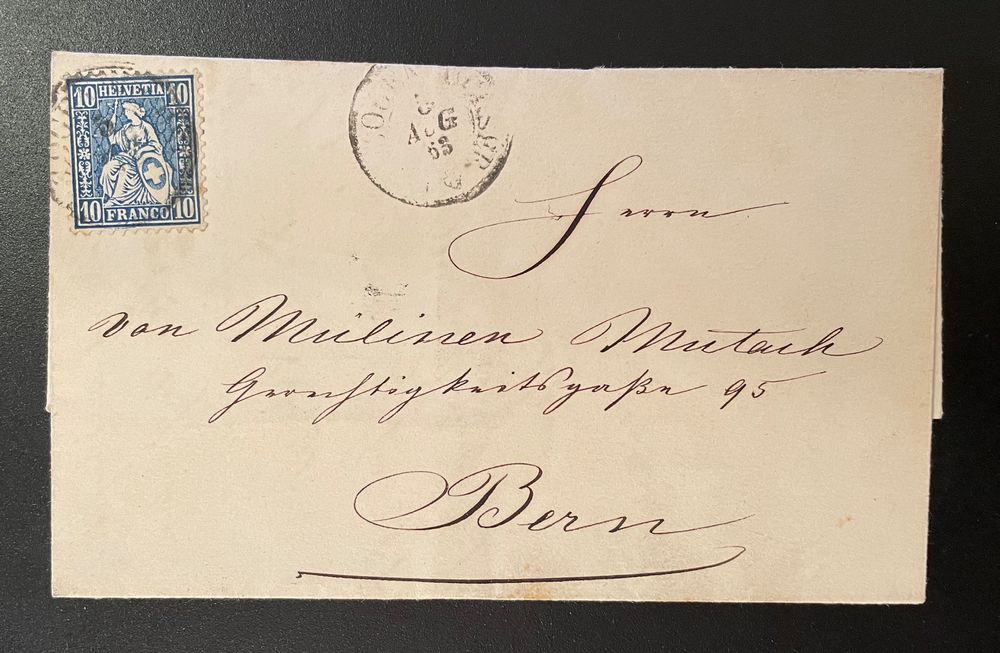 10 HELVETIA 10
10 FRANCO 10
AUG
63
Herrn
von Mülinen Mutach
Gerechtigkeitsgaße 95
Bern